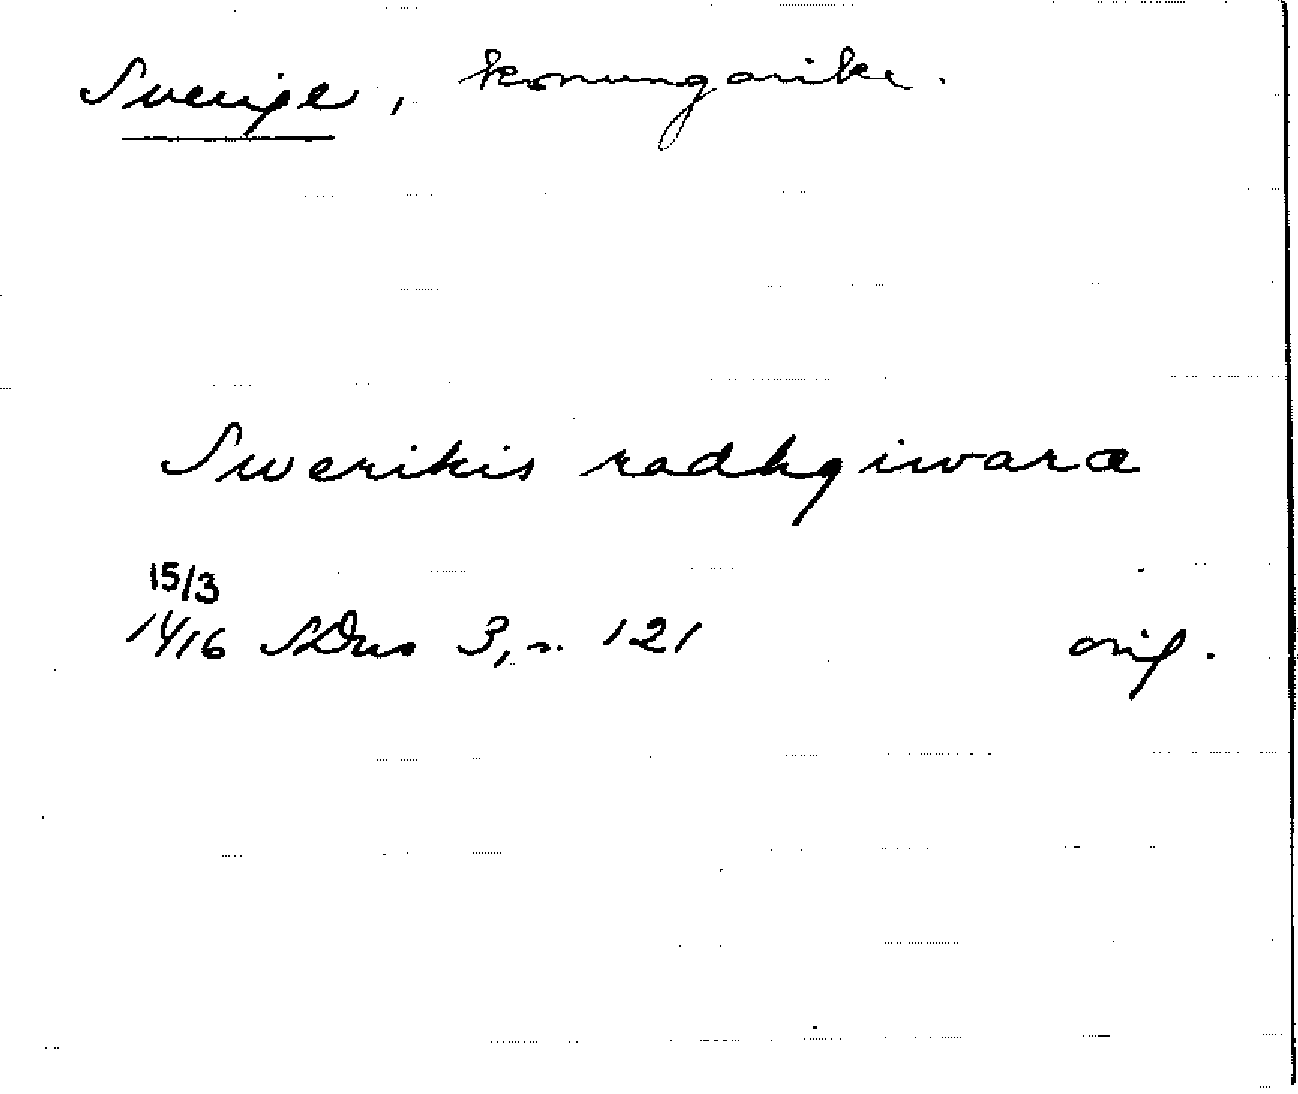 Sverige, konungarike.
Swerikis radhgiwara
15/3
1416 SDns 3, n. 121 orig.